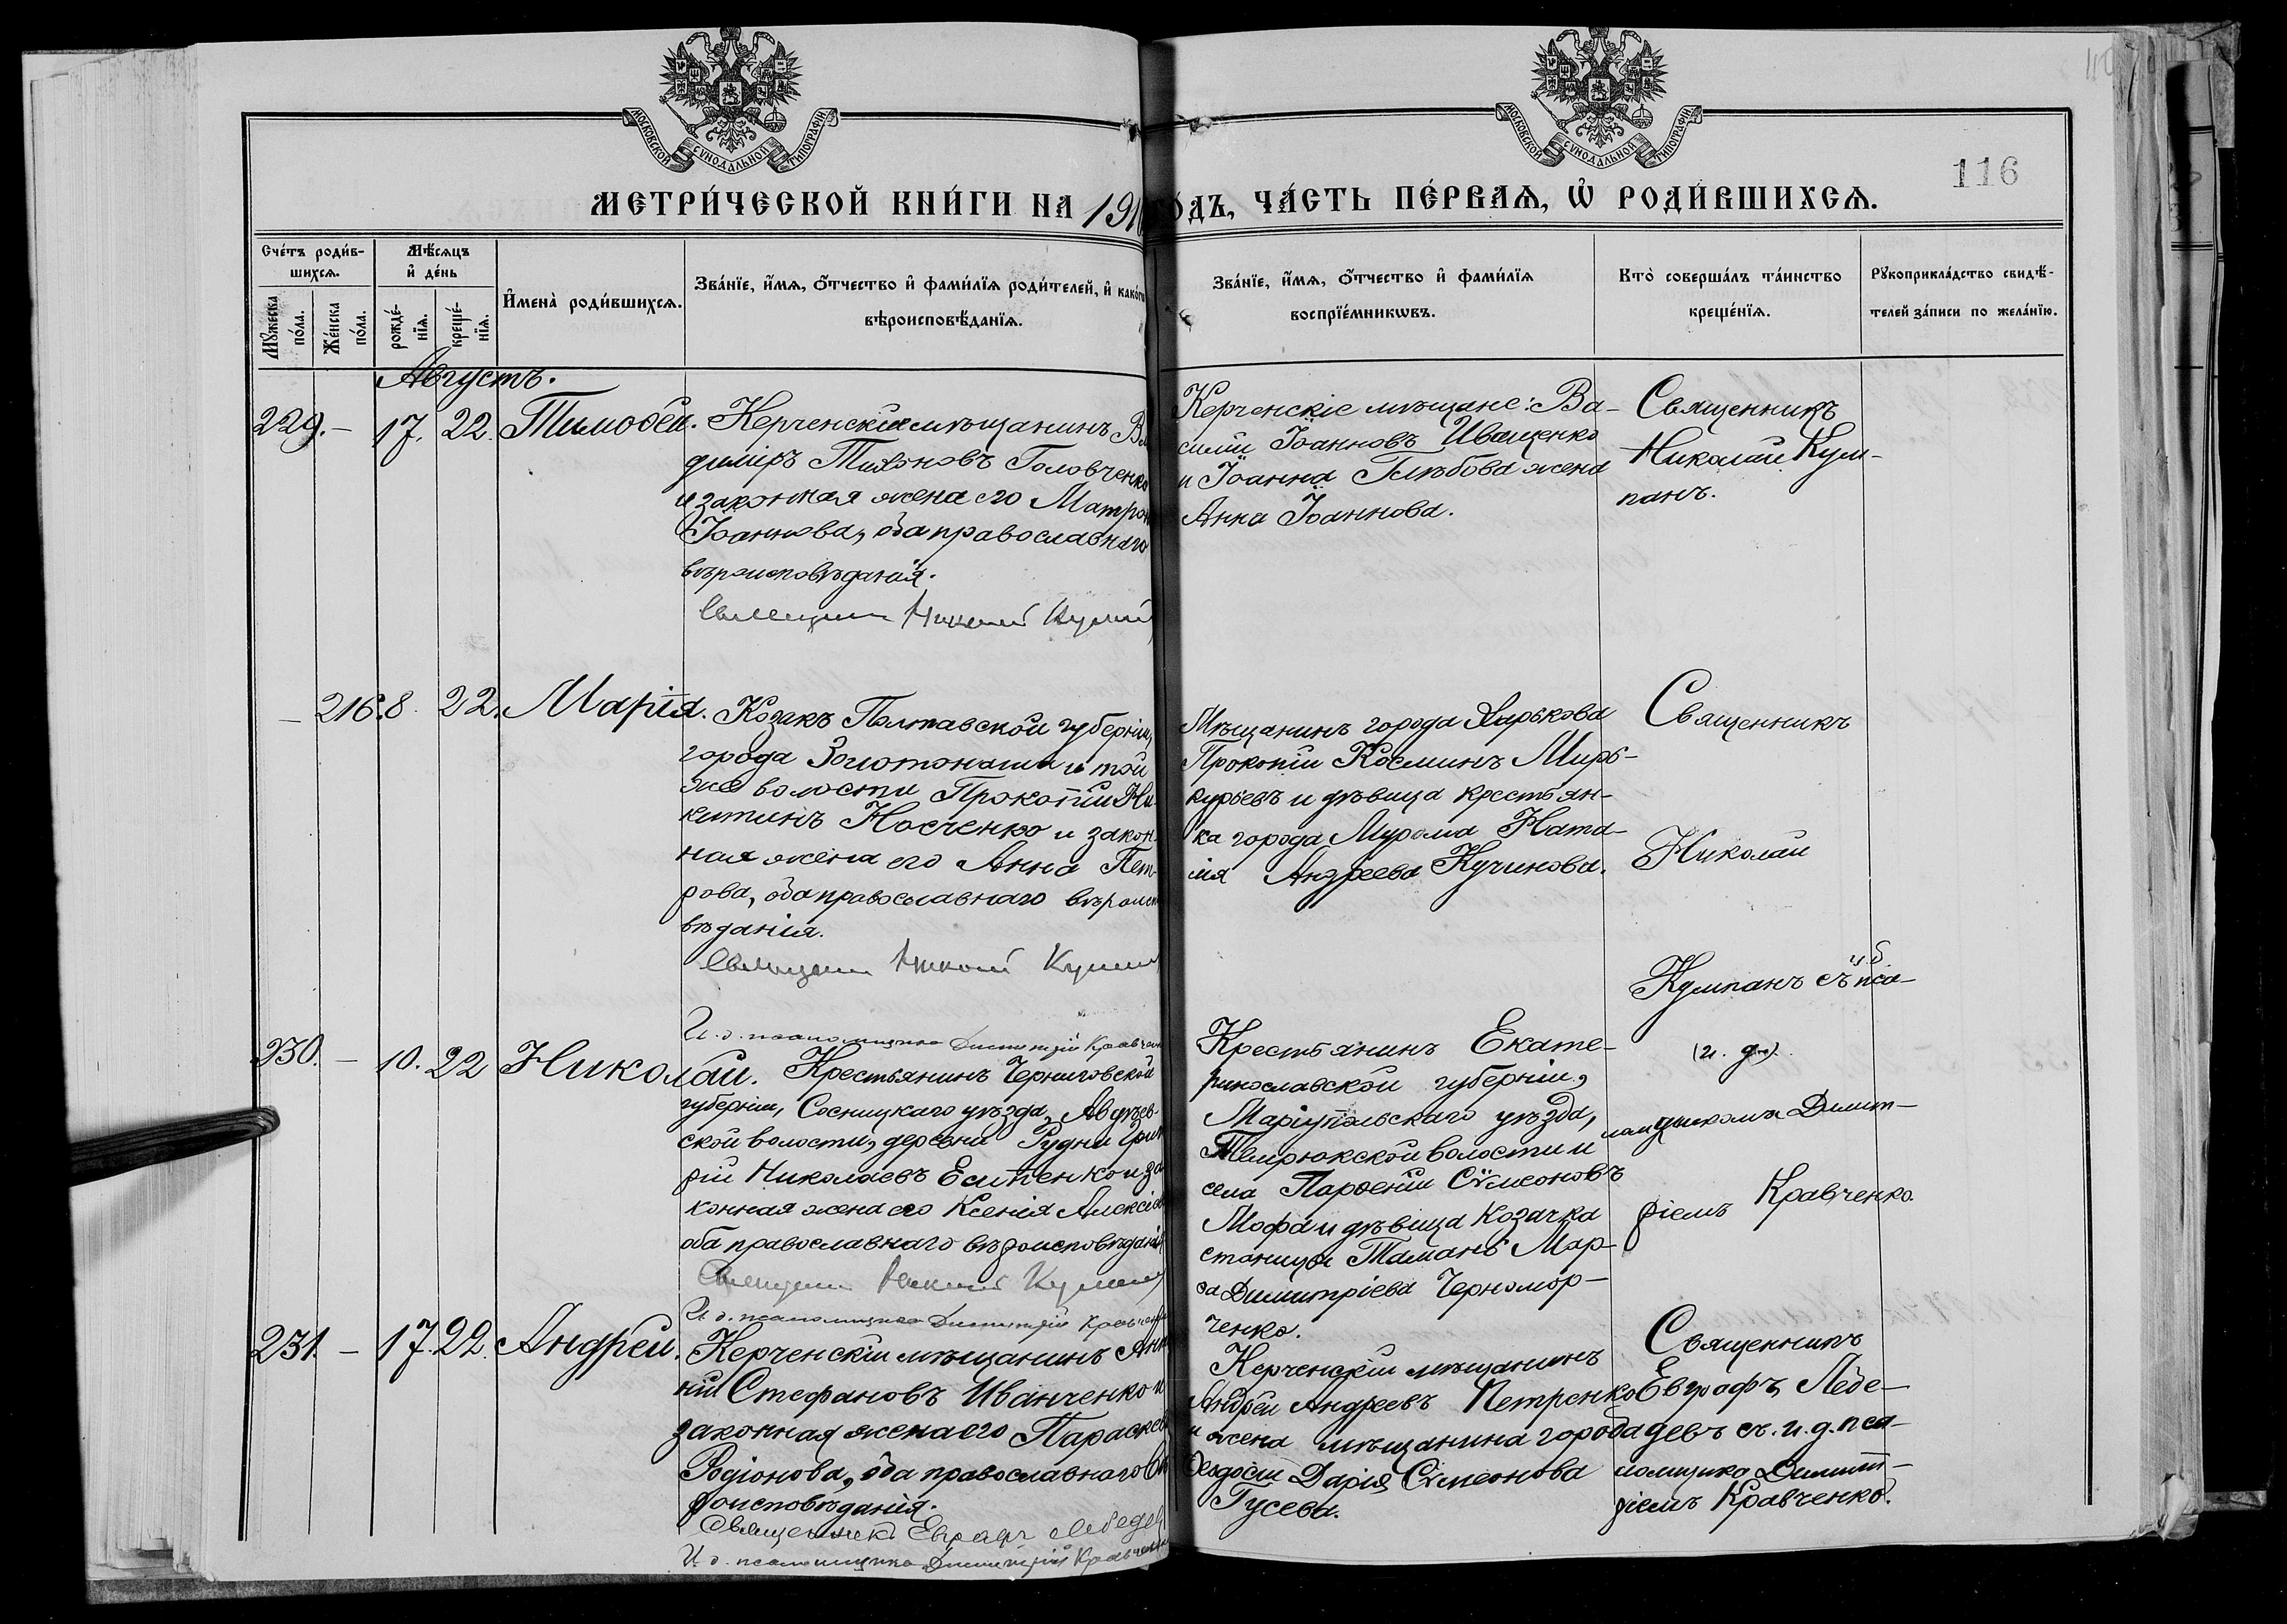 МОСКОВСКОЙ СѴНОДАЛЬНОЙ ТИПОГРАФІИ
МОСКОВСКОЙ СѴНОДАЛЬНОЙ ТИПОГРАФІИ
116
МЕТРИ́ЧЕСКОЙ КНИ́ГИ НА 191
О́ДЪ, ЧА́СТЬ ПЕ́РВАѦ, Ѡ҆ РОДИ́ВШИХСѦ.
Сче́тъ роди́в-
шихсѧ.
Мѣ́сѧцъ
и҆ де́нь
Мꙋ́жеска
по́ла.
Же́нска
по́ла.
рожде́-
нїѧ.
креще́-
нїѧ.
И҆мена̀ роди́вшихсѧ.
Зва́нїе, и҆́мѧ, ѻ҆́тчество и҆ фами́лїѧ роди́телей, и҆ како́гѡ
вѣроисповѣ́данїѧ.
Зва́нїе, и҆́мѧ, ѻ҆́тчество и҆ фами́лїѧ
воспрїе́мникѡвъ.
Кто̀ соверша́лъ та́инство
креще́нїѧ.
Рꙋкоприкла́дство свидѣ́-
телей за́писи по жела́нїю.
Августъ.
229. – 17. 22. Тимоѳей.
Керченскій мѣщанинъ Вла
диміръ Тихоновъ Головченко
и законная жена его Матрон
Іоаннова, оба православнаго
вѣроисповѣданія.
Священник Николай Кумпан
Керченскіе мѣщане: Ва-
силій Іоанновъ Иващенко
и Іоанна Глѣбова жена
Анна Іоаннова.
Священникъ
Николай Кум-
панъ.
– 216. 8. 22. Марія.
Козакъ Полтавской губерніи,
города Золотоноши и той
же волости Прокопій Ни-
китинъ Носченко и закон-
ная жена его Анна Пет-
рова, оба православнаго вѣроиспо
вѣданія.
Священник Николай Кумпан
И. д. псаломщика Димитрій Кравчен
Мѣщанинъ города Харькова
Прокопій Косминъ Мирь-
курьевъ и дѣвица крестьян-
ка города Мурома Ната-
лія Андреева Кучинова.
Священникъ
Николай
Кумпанъ съ пса-
(и. д.)
ломщикомъ Димит-
ріемъ Кравченко.
230. – 10. 22 Николай.
Крестьянинъ Черниговской
губерніи, Сосницкаго уѣзда, Авдѣев-
ской волости, деревни Рудни Григо
рій Николаевъ Есипенко и за
конная жена его Ксенія Алексіева
оба православнаго вѣроисповѣданія
Священник Николай Кумпан
И. д. псаломщика Димитрій Кравченко
Крестьянинъ Екате-
ринославской губерніи,
Маріупольскаго уѣзда,
Темрюкской волости и
села Парѳеній Сѵмеоновъ
Мофа и дѣвица козачка
станицы Тамань Мар-
ѳа Димитріева Черномор-
ченко.
231. – 17. 22. Андрей.
Керченскій мѣщанинъ Ана
ній Стефановъ Иванченко и
законная жена его Параскева
Родіонова, оба православнаго вѣ
роисповѣданія.
Священникъ Евграфъ Лебедев
И. д. псаломщика Димитрій Кравченко
Керченскій мѣщанинъ
Андрей Андреевъ Петренко
и жена мѣщанина города
Ѳеодосіи Дарія Сѵмеонова
Гусева.
Священникъ
Евграфъ Лебе-
девъ съ и. д. пса-
ломщика Димит-
ріемъ Кравченко.